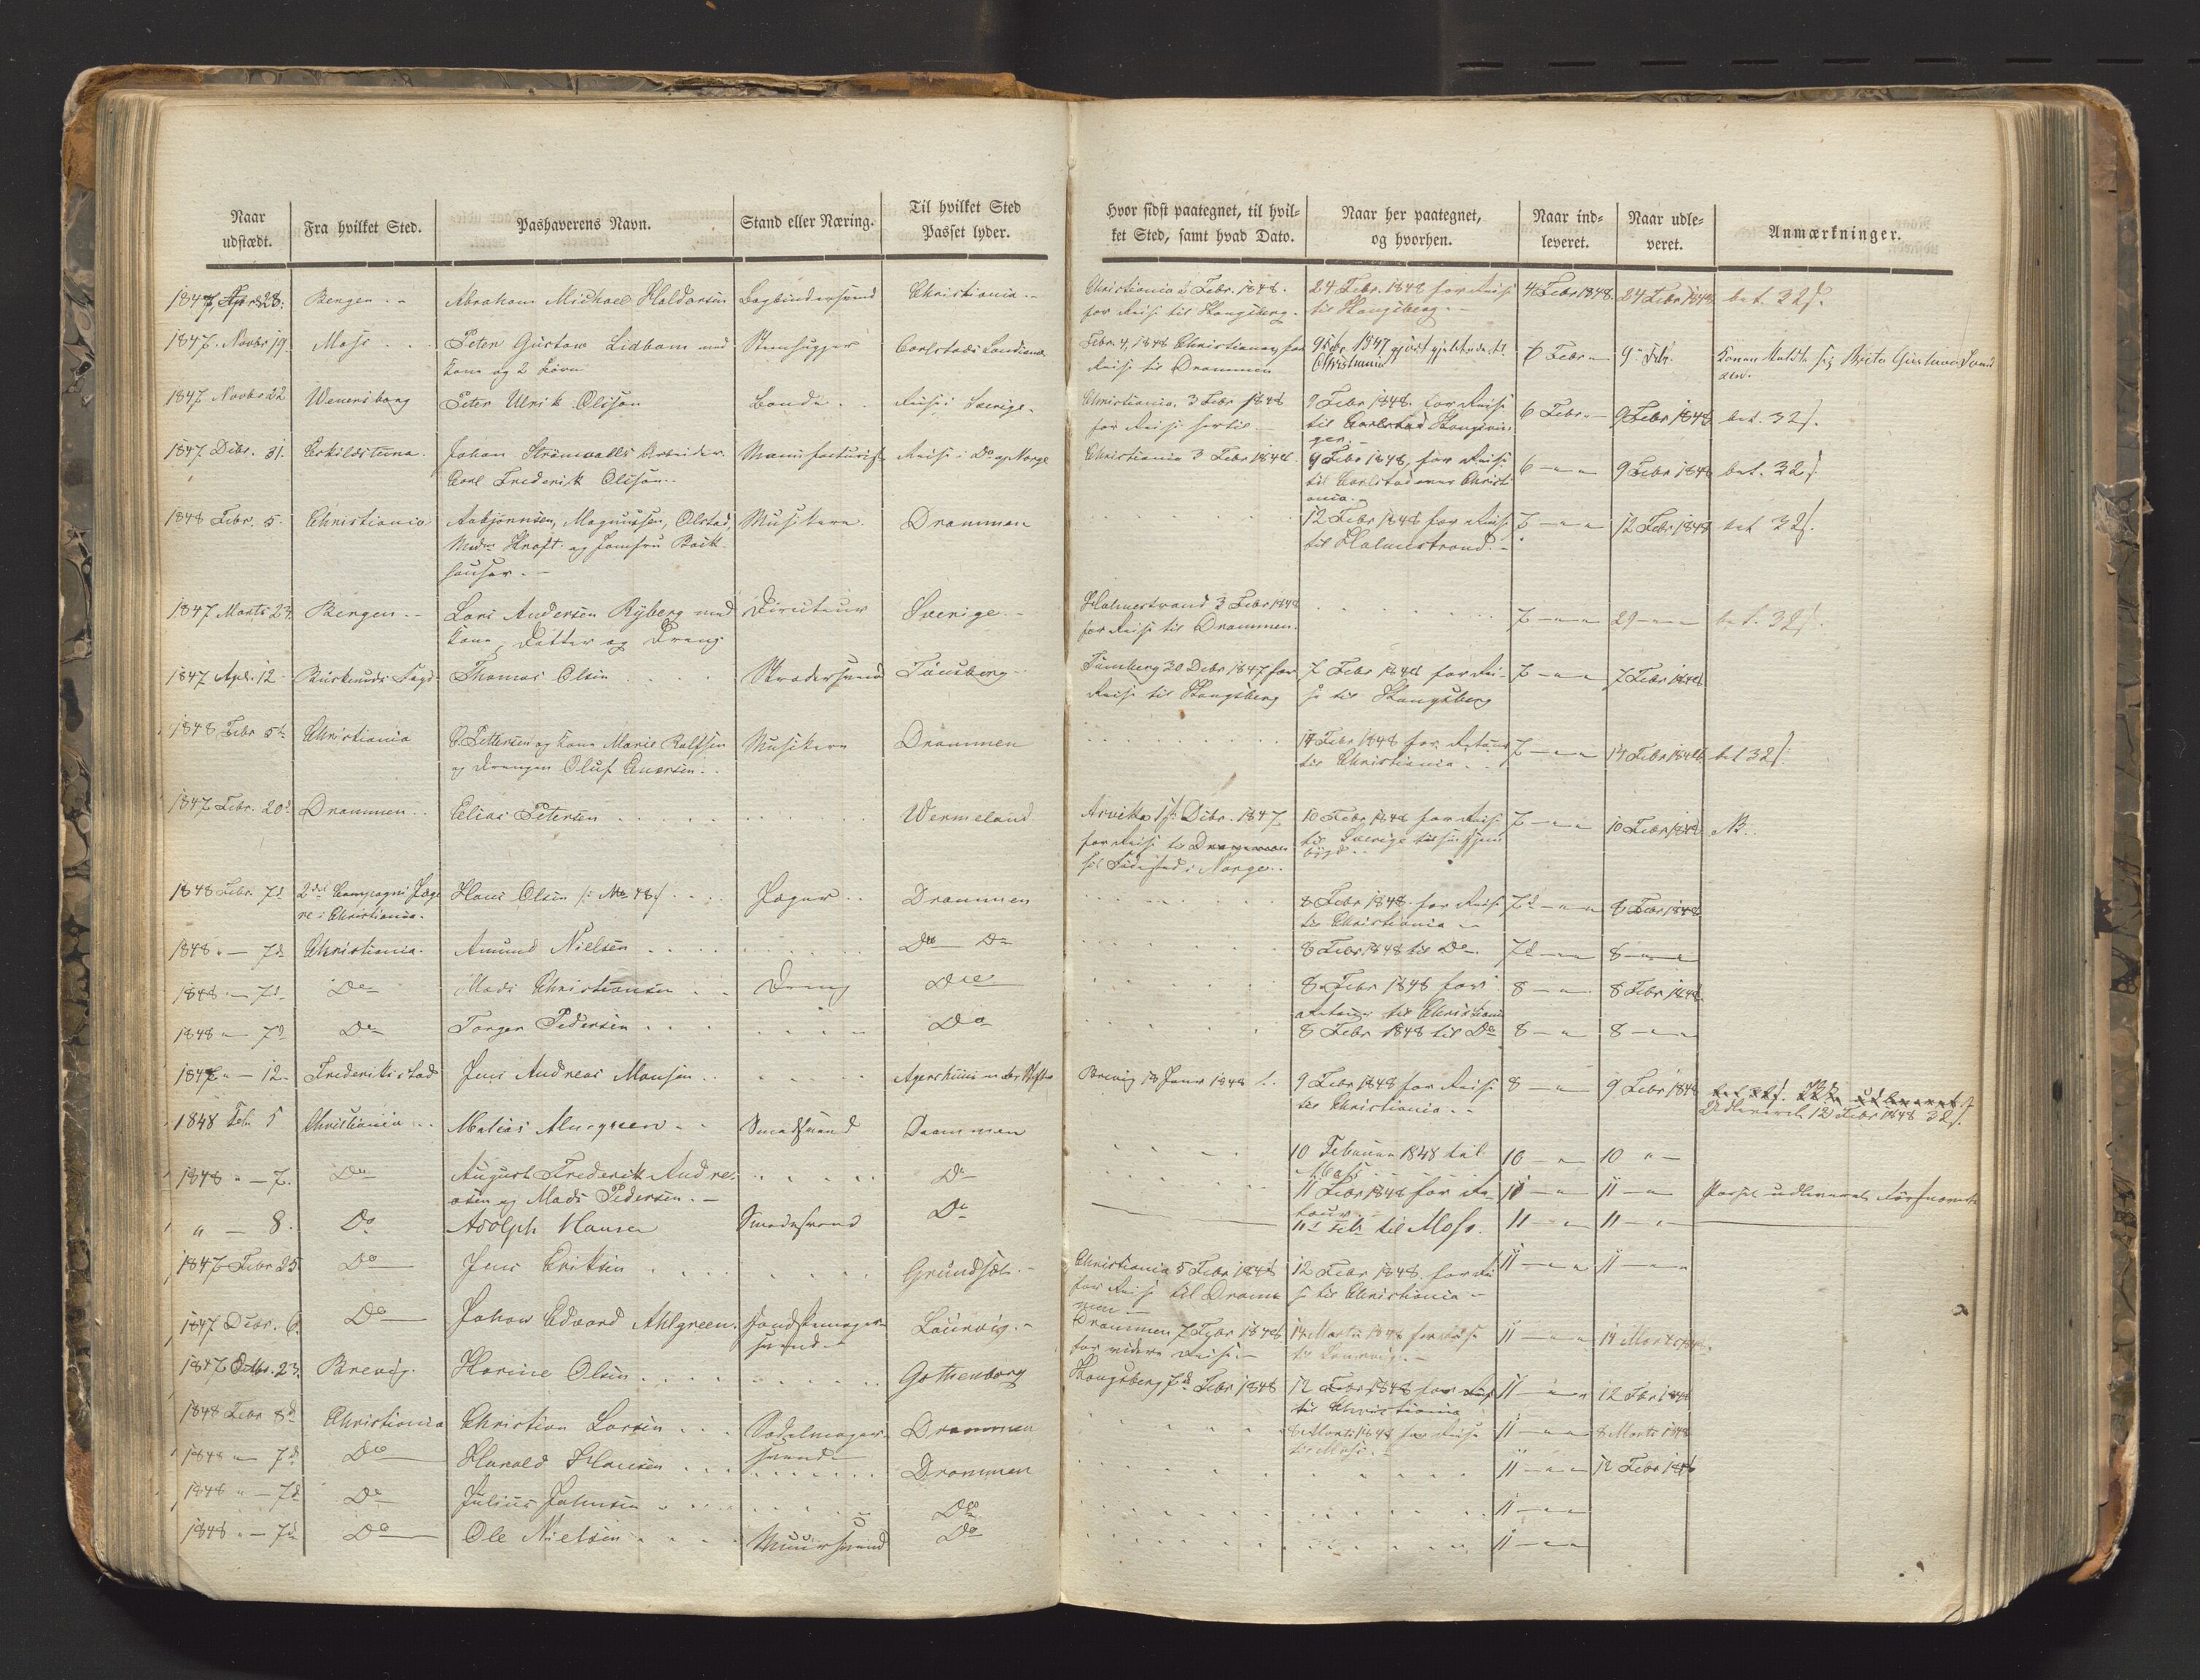 Naar
udstædt.
Fra hvilket Sted.
Pashaverens Navn.
Stand eller Næring.
Til hvilket Sted
Passet lyder.
Hvor sidst paategnet, til hvil-
ket Sted, samt hvad Dato.
Naar her paategnet,
og hvorhen.
Naar ind-
leveret.
Naar udle-
veret.
Anmærkninger.
1847, 28. Bergen Abraham Michael Haldorsen Bogbindersvend Christiania
Christiania 3 Febr. 1848. 24 Febr. 1848 for Reise 4 Febr 1848. 24 Febr 1848 bet. 32 ſ.
for Reise til Kongsberg. til Kongsberg.
1847. Novbr 19. Moss Peter Gustav Lidbom med Steenhugger Carlstads
Kone og 2 Børn
Febr. 4, 1848 Christiania, for 9 Febr. 1847 6 Febr 9 Febr.
Reise til Drammen Christiania
1847 Novbr 22 Wenersborg Peter Ulrik Olsson Bonde Reise i Sverige.
Christiania 3 Febr 1848 9 Febr 1848 for Reise 6 Febr 9 Febr 1848 bet. 32 ſ.
for Reise hertil til Carlstad Kongsvin-
ger.
1847 Decbr. 31. Eskildstuna. Johan Strömvalls Arbeider Manufacturist Reise i Do og Norge
Carl Frederik Olsson
Christiania 3 Febr 1848. 9 Febr 1848, for Reise 6 9 Febr 1848 bet. 32 ſ
til Carlstad over Christi
ania.
1848 Febr. 5. Christiania Asbjørnsen, Magnussen, Olstad, Musikere Drammen
Kraft og Jomfru Back-
hauser.
12 Febr 1848 for Reise 7 12 Febr 1848 bet 32 ſ.
til Holmestrand.
1847 Marts 24 Bergen Lars Andersen Ryberg med Directeur Sverige
Kone, Datter og Dreng
Holmestrand 3 Febr 1848 7 29 bet. 32 ſ.
for Reise til Drammen.
1847 Apl. 12 Buskeruds Fogd. Thomas Olsen Skrædersvend Tønsberg
Tønsberg 30 Decbr 1847 for 7 Febr 1848 for Rei- 7 7 Febr 1848
Reise til Kongsberg se til Kongsberg
1848 Febr 5te Christiania Pettersen og Kone Marie Rolfsen Musikere Drammen
og Drengen Oluf Evensen
14 Febr 1848 for Retour 7 14 Febr 1848 bet 32 ſ.
til Christiania
1847 Febr. 20. Drammen Elias Petersen Wermeland
Arvika Decbr. 1847 10 Febr 1848 for Reise 7 10 Febr 1848
for Reise til Drammen til Sverige til sin Hjem
sit Fødested i Norge. bygd
1848 Febr. 7d 2den Compagni Jæge Hans Olsen No 48 Jæger Drammen
re i Christiania.
8 Febr 1848 for Reise 7d 8 Febr 1848
til Christiania
1848 7d Christiania. Amund Nielsen Do
8 Febr 1848 til Do 7d 8
1848 7d Do Mads Christiansen Dreng Do
8 Febr 1848 for 8 8 Febr 1848
Retour til Christiania
1848 7d Do Torger Pedersen Do
8 Febr 1848 til Do 8 8
1847 12 Frederikstad Jens Andreas Monsen Agershuus
Brevig 18 Janr 1848 9 Febr 1848 for Reise 8 9 Febr 1848
til Christiania Udleveret 12 Febr 1848 32 ſ.
1848 Feb 5 Christiania Matias Smedsvend Drammen
10 Februar 1848 til 10 10
Moss
1848 7 Do August Frederik Andre- Do
asen og Mads Pedersen.
11 Febr 1848 for Re 11 11 Passet udleveret
tour
8. Do Adolph Hansen Smedesvend Do
11 Feb til Moss. 11 11
1847 Febr 25 Do Jens Eriksen Grundset
Christiania 5 Febr 1848 12 Febr 1848. for Rei 11 11
for Reise til Dram se til Christiania
men
1847 Decbr. 6. Do Johan Edvard Ahlgreen. Handskemager- Laurvig.
svend
Drammen 7 Febr 1848 14 Marts 1848 for Reise 11 14 Marts 1848
for videre Reise til Laurvig.
1847 23. Brevig. Karine Olsen Gothenborg
Kongsberg 7d Febr 1848 12 Febr 1848 for Reise 11 12 Febr 1848
til Christiania
1848 Febr 8d Christiania Christian Larsen Sadelmager- Drammen
svend
8 Marts 1848 for Reise 11 8 Marts 1848
til Moss.
1848 7d Do Harald Hansen Drammen
11 12 Febr 1848
1848 7d Do Julius Johnsen Do
11
1848 7d Do Ole Nielsen Muursvend Do
11